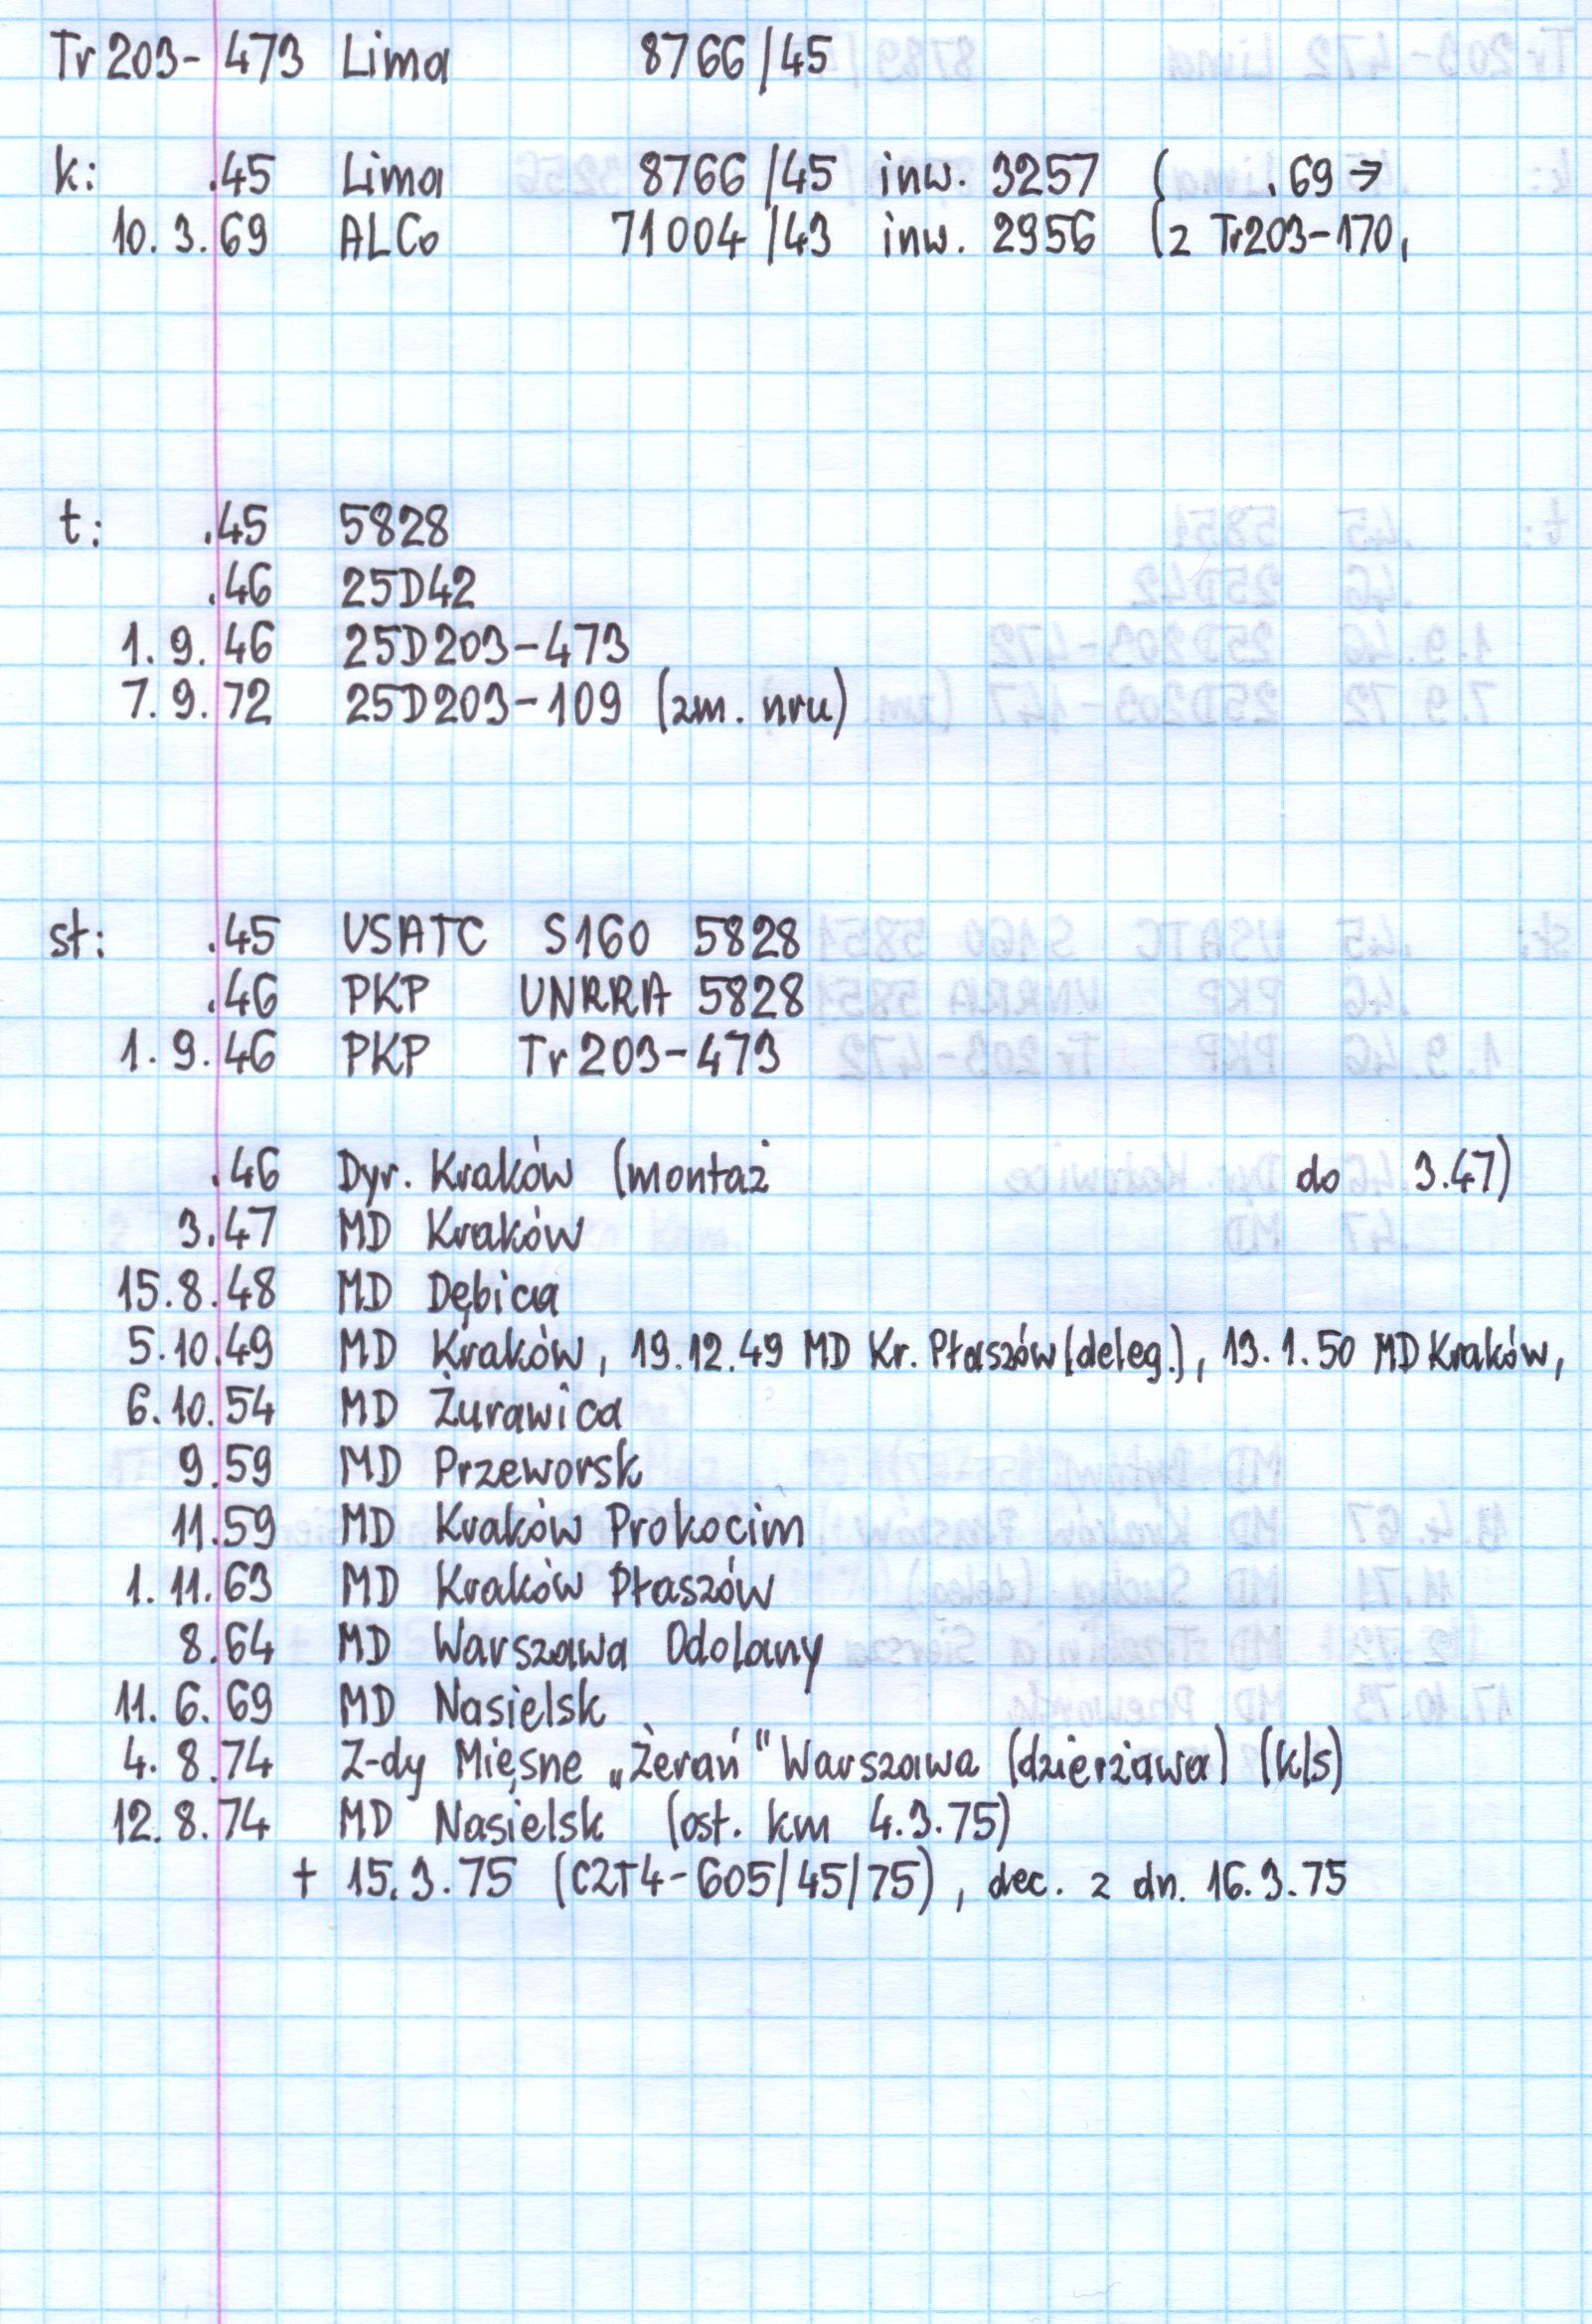 Tr203-473 Lima 8766/45
k: .45 Lima 8766/45 inw. 3257 ( .69 →
10.3.69 ALCo 71004/43 inw. 2956 (z Tr203-170,
t: .45 5828
.46 25D42
1.9.46 25D203-473
7.9.72 25D203-109 (zm. nru)
sł: .45 USATC S160 5828
.46 PKP UNRRA 5828
1.9.46 PKP Tr203-473
.46 Dyr. Kraków (montaż do 3.47)
3.47 MD Kraków
15.8.48 MD Dębica
5.10.49 MD Kraków, 19.12.49 MD Kr. Płaszów (deleg.), 13.1.50 MD Kraków,
6.10.54 MD Żurawica
9.59 MD Przeworsk
11.59 MD Kraków Prokocim
1.11.63 MD Kraków Płaszów
8.64 MD Warszawa Odolany
11.6.69 MD Nasielsk
4.8.74 Z-dy Mięsne „Żerań" Warszawa (dzierżawa) (k/s)
12.8.74 MD Nasielsk (ost. km 4.3.75)
+ 15.3.75 (CZT4-605/45/75), dec. z dn. 16.3.75